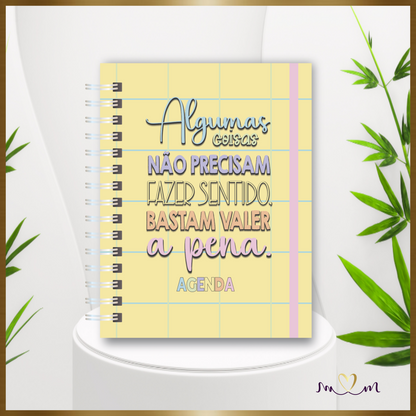 Algumas
coisas
NÃO PRECISAM
FAZER SENTIDO.
BASTAM VALER
a pena.
AGENDA
m m